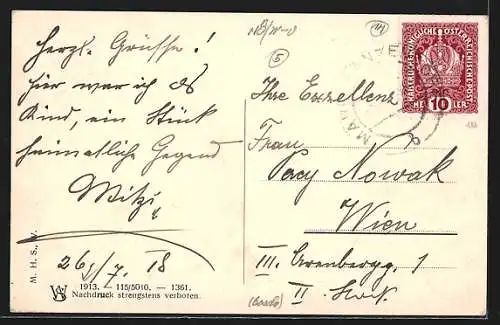 Herzl. Grüsse!
hier war ich als
Kind, ein Stück
heimatliche Gegend
Mitzi
26/7. 18
M. H. S., W.
1913. — 115/5010. — 1361.
Nachdruck strengstens verboten.
5
KAISERLICHE KÖNIGLICHE ÖSTERREICHISCHE POST
HELLER 10 HELLER
Ihre Exzellenz
Frau
Pary Nowak
Wien
III. Arenbergg. 1
II Stock